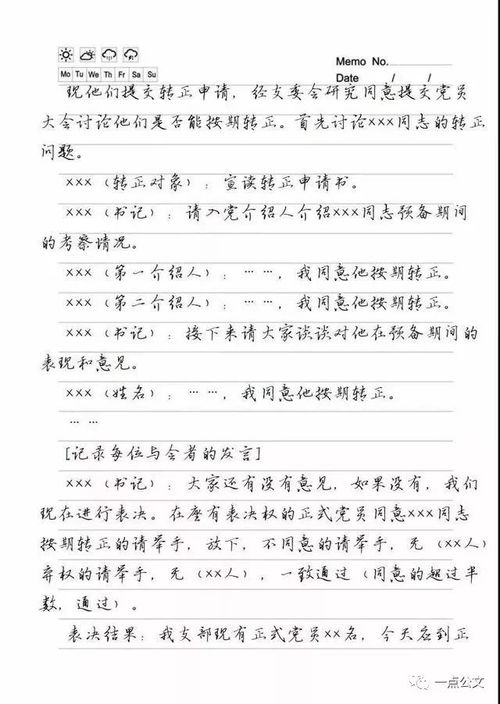 Memo No.
Mo Tu We Th Fr Sa Su
Date / /
现他们提交转正申请，经支委会研究同意提交党员
大会讨论他们是否能按期转正。首先讨论xxx同志的转正
问题。
xxx（转正对象）：宣读转正申请书。
xxx（书记）：请入党介绍人介绍xxx同志预备期间
的考察情况。
xxx（第一介绍人）：……，我同意他按期转正。
xxx（第二介绍人）：……，我同意他按期转正。
xxx（书记）：接下来请大家谈谈对他在预备期间的
表现和意见。
xxx（姓名）：……，我同意他按期转正。
……
[记录每位与会者的发言]
xxx（书记）：大家还有没有意见，如果没有，我们
现在进行表决。在座有表决权的正式党员同意xxx同志
按期转正的请举手，放下，不同意的请举手，无（xx人）
弃权的请举手，无（xx人），一致通过（同意的超过半
数，通过）。
表决结果：我支部现有正式党员xx名，今天应到正
一点公文